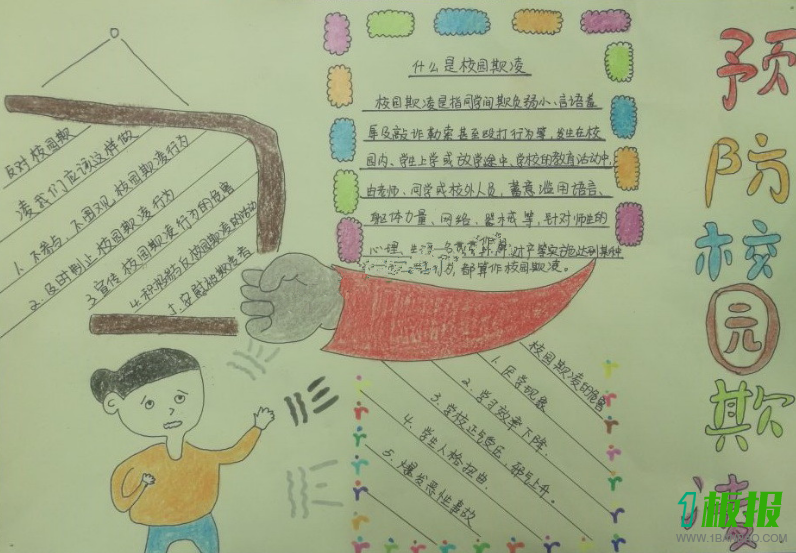 预防校园欺凌
什么是校园欺凌
校园欺凌是指同学间欺负弱小、言语羞
辱及敲诈勒索甚至殴打行为等,发生在校
园内、学生上学或放学途中、学校的教育活动中,
由老师、同学或校外人员,蓄意滥用语言、
躯体力量、网络、器械等,针对师生的
心理、名
都算作校园欺凌。
反对校园欺
凌我们应该这样做
1. 不参与、不围观校园欺凌行为
2 及时制止校园欺凌行为
3 宣传校园欺凌行为的危害
4. 积极参与反校园欺凌的活动
5. 安慰被欺凌者
校园欺凌的危害
1. 厌学现象
2. 学习效率下降.
3. 学校正气 邪气上升.
4. 学生人格扭曲.
5. 爆发恶性事故
1板报
WWW.1BANBAO.COM